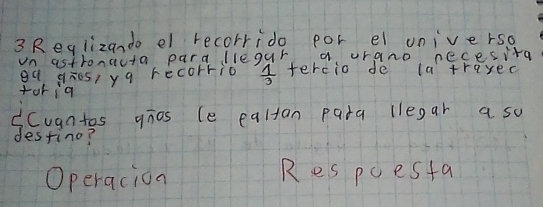 3 Reqlizando el recorrido por el universo
un astronauta para llegar a urano necesita
99 años, ya recorrio 1/3 tercio de la trayec
toria
¿Cuantos años le faltan para llegar a su
destino?
Operacion Respuesta